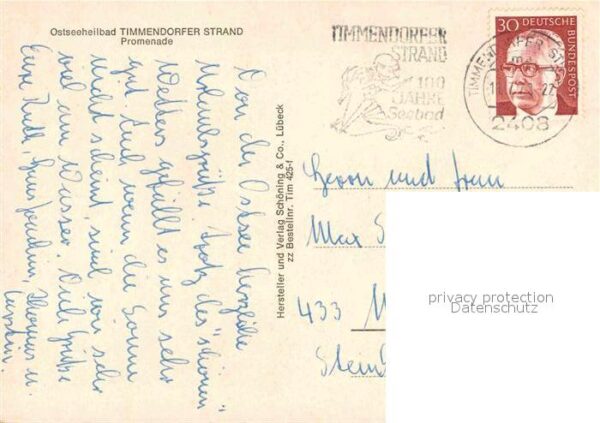 Ostseeheilbad TIMMENDORFER STRAND
Promenade
Von der Ostsee herzliche
Urlaubsgrüße. Trotz des "schönen"
Wetters gefällt es uns sehr
gut. Und wenn die Sonne
nicht scheint, sind wir sehr
viel am Wasser. Viele Grüße
Eure Ruth, Hans Joachim, Thomas u.
Hersteller und Verlag Schöning & Co., Lübeck
zz Bestellnr. Tim 425-f
TIMMENDORFER
STRAND
100
JAHRE
Seebad
30 DEUTSCHE
BUNDESPOST
2408
Herrn und Frau
Max
433
privacy protection
Datenschutz